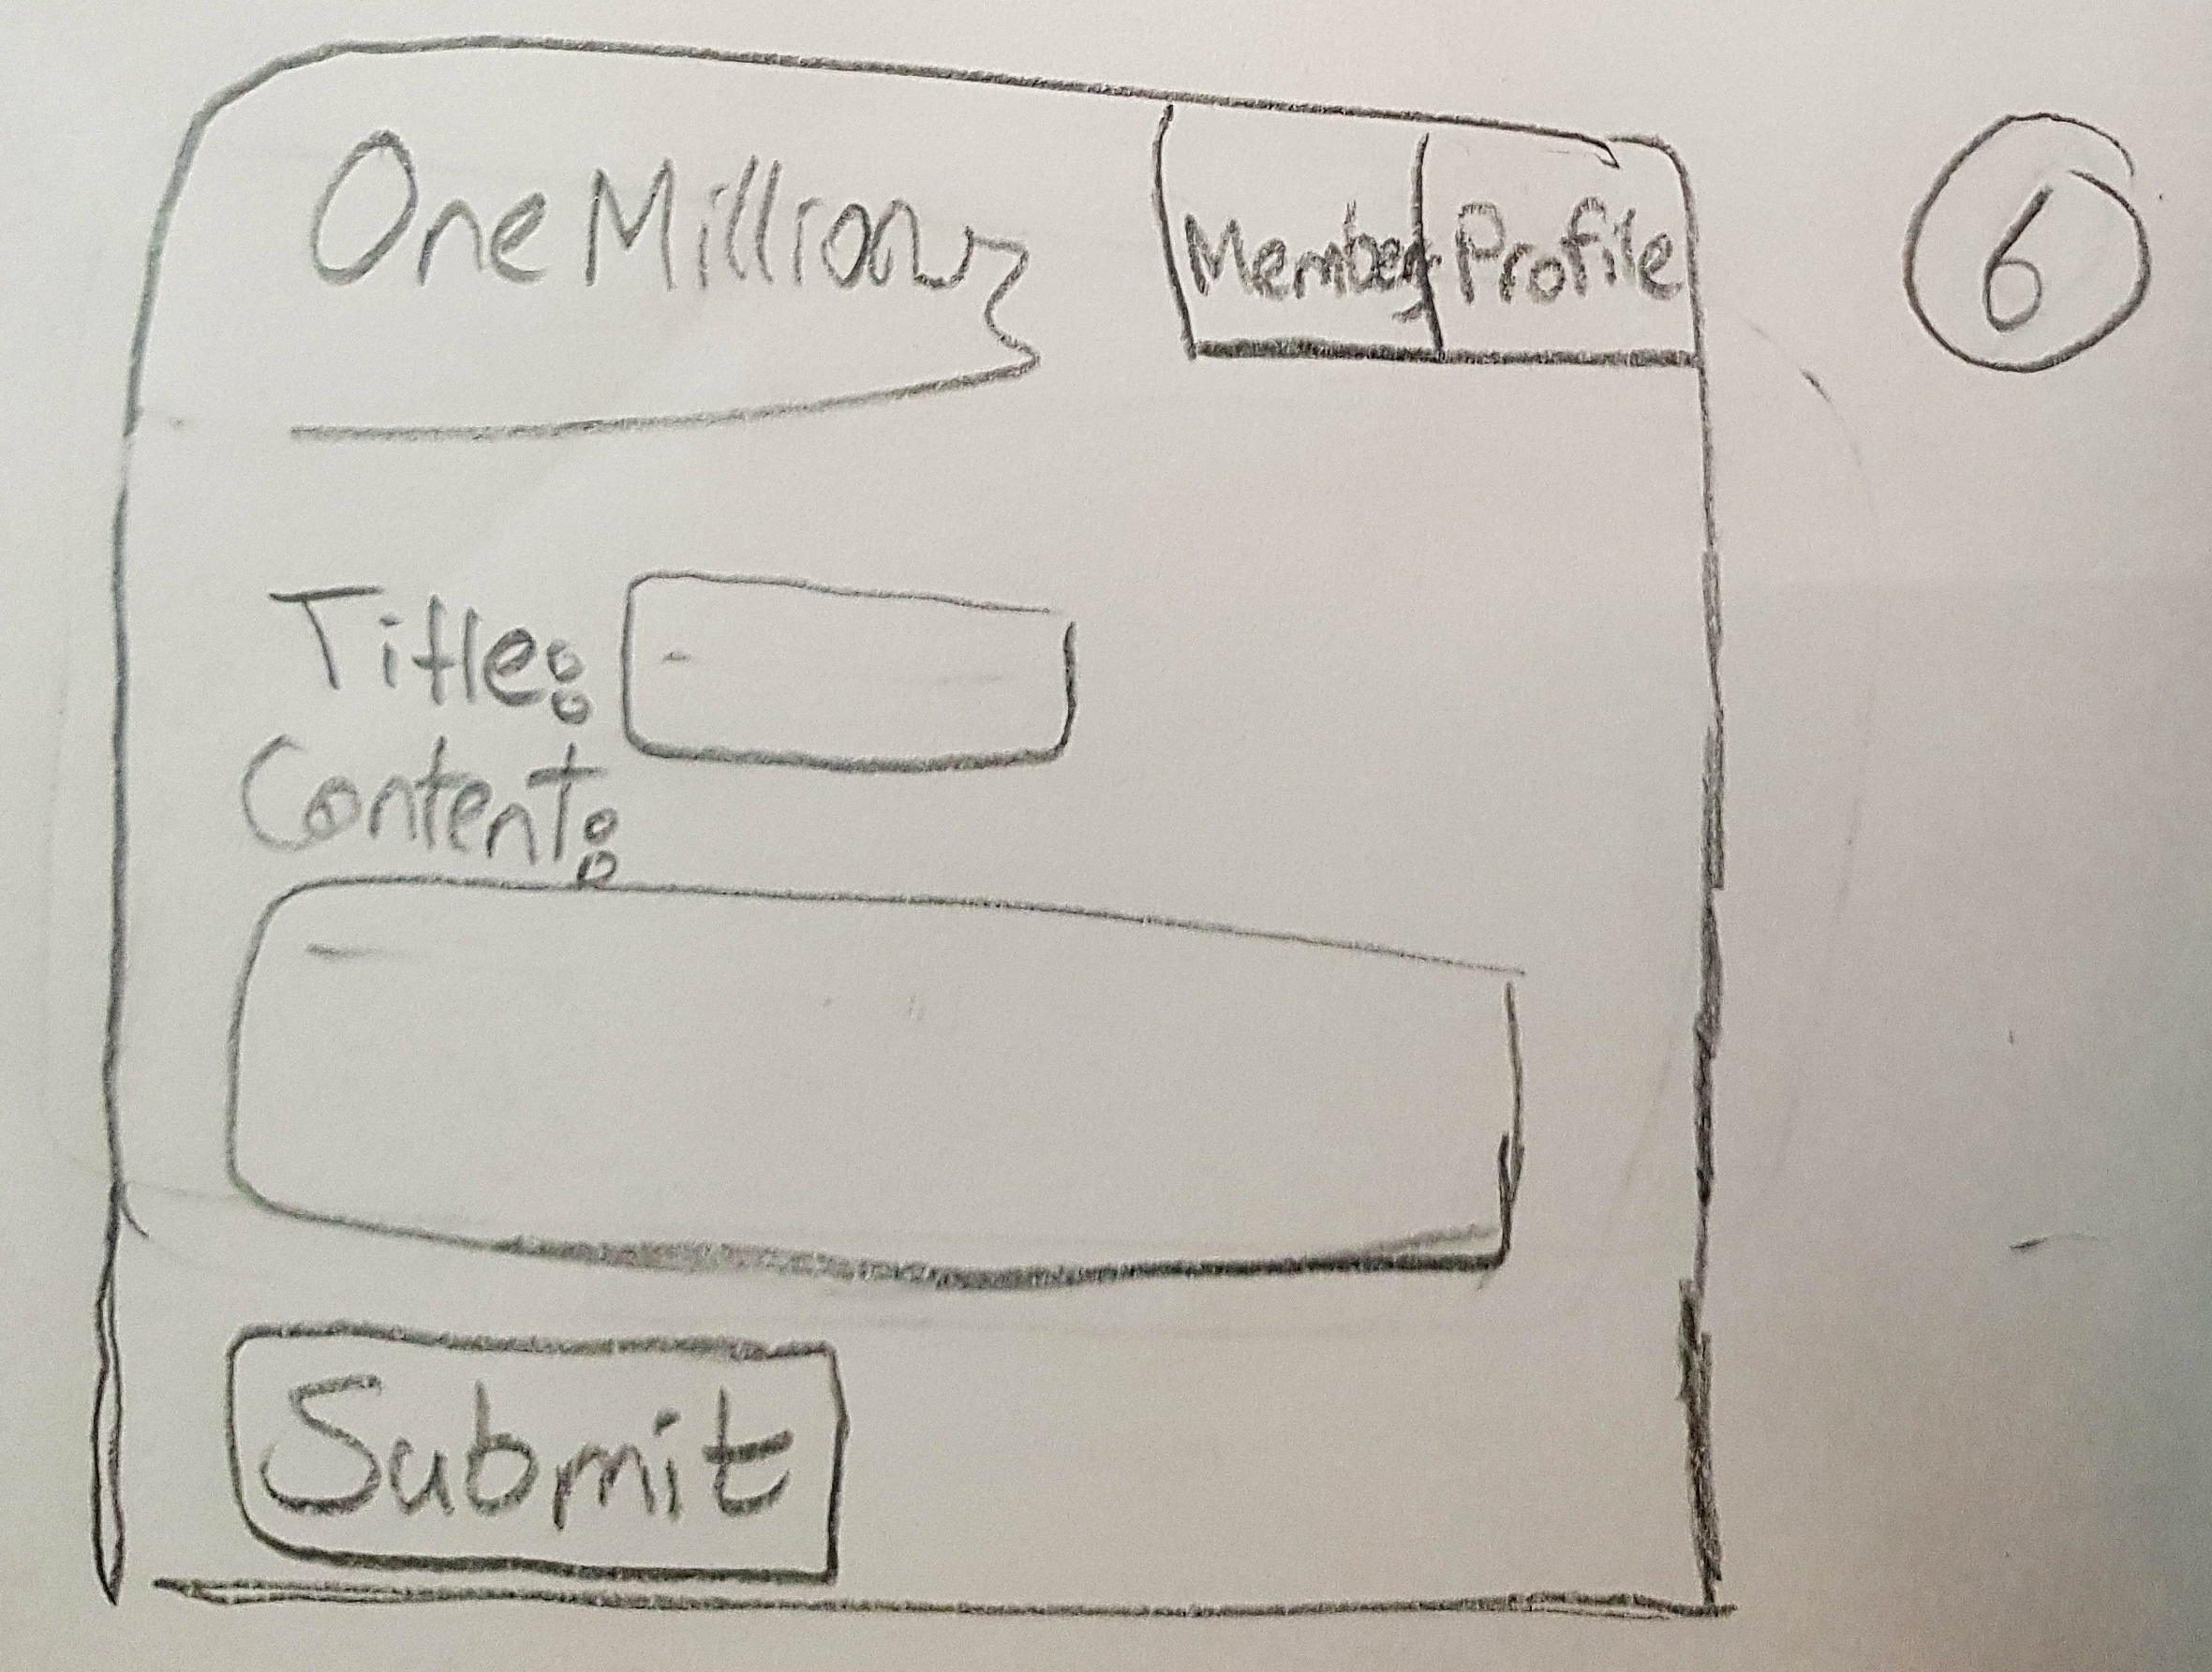 OneMillion
Members Profile
6
Title:
Content:
Submit